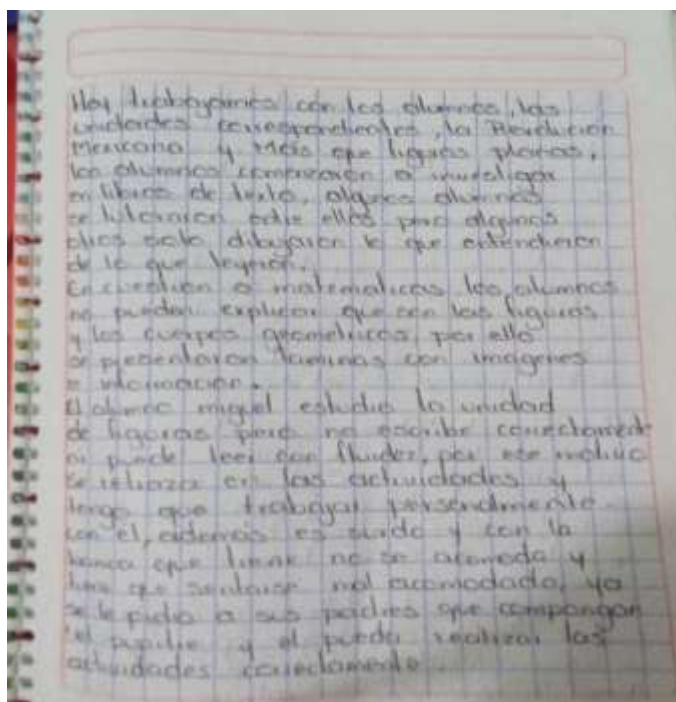 Hoy trabajamos con los alumnos, las
unidades correspondientes, la Revolución
Mexicana y Más que figuras planas,
los alumnos comenzaron a investigar
en libros de texto, algunos alumnos
entre ellos pero algunos
otros solo dibujaron lo que entendieron
de lo que leyeron.
En cuestion a matematicas los alumnos
no puedan explicar que son las figuras
y los cuerpos geometricos, por ello
se presentaron laminas con imagenes
e información.
El alumno miguel estudia la unidad
de figuras pero no escribe correctamente
ni puede leer con fluidez, por ese motivo
se retraza en las actividades y
tengo que trabajar personalmente
con el, ademas es zurdo y con la
banca que tiene no se acomoda y
tiene que sentarse mal acomodado, ya
se le pidio a sus padres que compongan
el pupitre y el pueda realizar las
actividades correctamente.